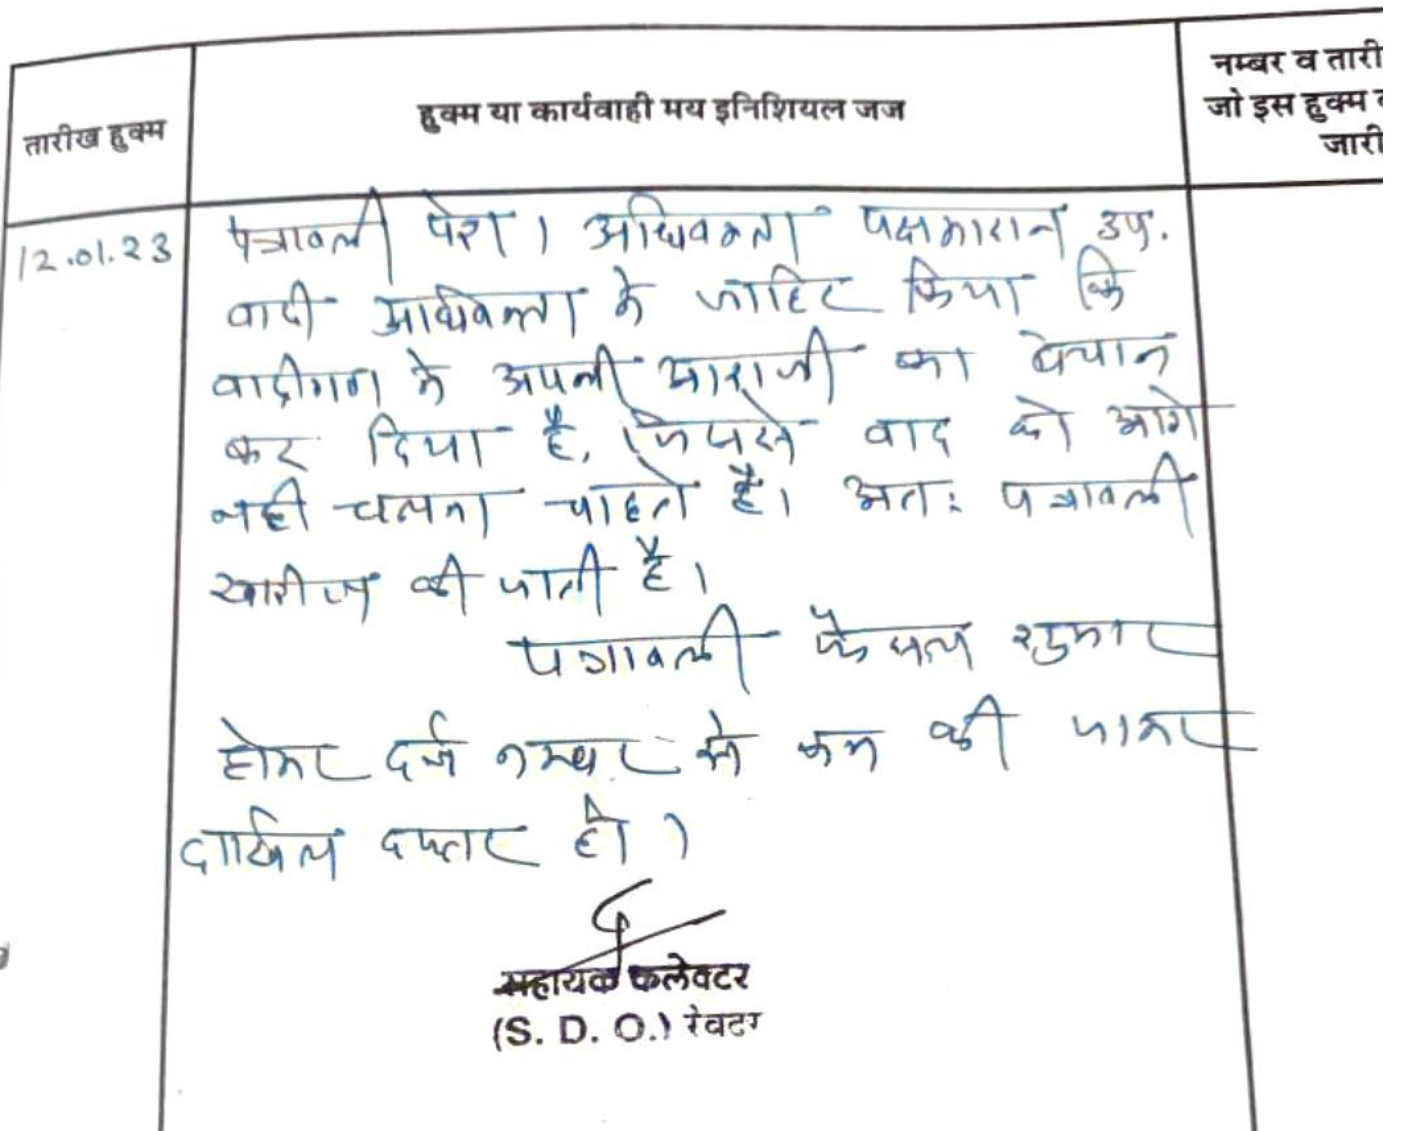 तारीख हुक्म
हुक्म या कार्यवाही मय इनिशियल जज
नम्बर व तारी
जो इस हुक्म
जारी
12.01.23
पत्रावली पेश। अधिवक्ता पक्षकारान उप.
वादी अधिवक्ता ने जाहिर किया कि
वादीगण ने अपनी आराजी का बेचान
कर दिया है, जिससे वाद को आगे
नही चलाना चाहते है। अतः पत्रावली
खारीज की जाती है।
पत्रावली फैसल शुमार
होकर दर्ज नम्बर से कम की जाकर
दाखिल दफ्तर हो।
सहायक कलेक्टर
(S. D. O.) रेवदर